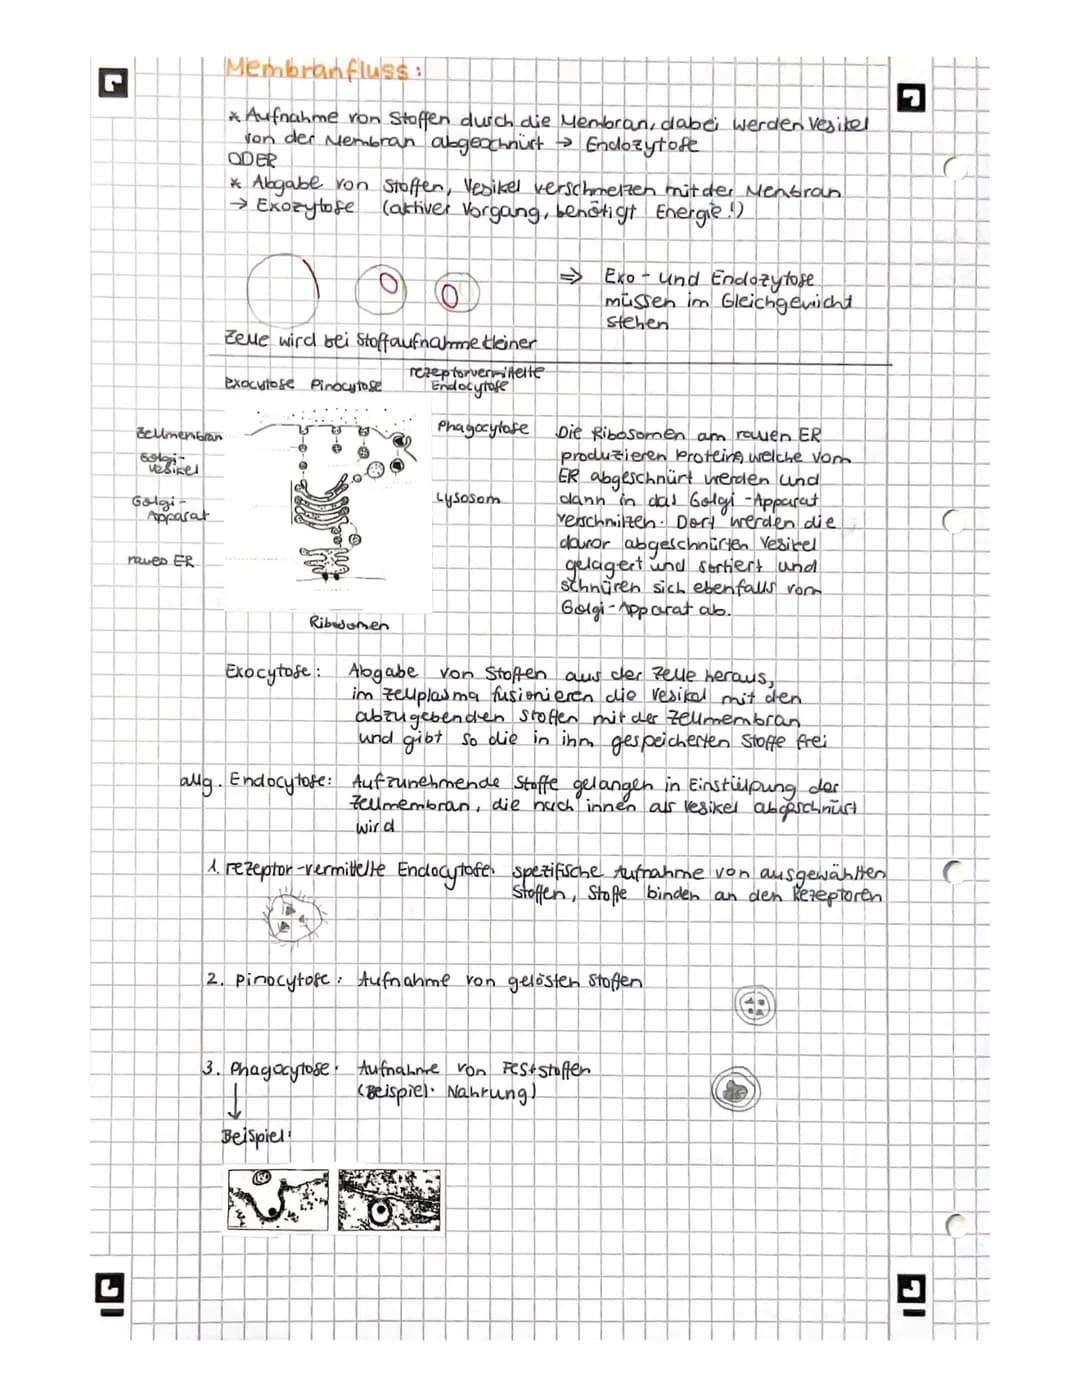 Membranfluss:
* Aufnahme von Stoffen durch die Membran, dabei werden Vesikel
von der Membran abgeschnürt → Endozytose
ODER
* Abgabe von Stoffen, Vesikel verschmelzen mit der Membran
→ Exozytose (aktiver Vorgang, benötigt Energie!)
⇒ Exo- und Endozytose
müssen im Gleichgewicht
stehen
Zelle wird bei Stoffaufnahme kleiner
Exocytose Pinocytose rezeptorvermittelte
Endocytose
Phagocytose
Zellmembran
Golgi-
Vesikel
Golgi-
Apparat
raues ER
Lysosom
Ribosomen
Die Ribosomen am rauen ER
produzieren Proteine, welche vom
ER abgeschnürt werden und
dann in das Golgi-Apparat
verschmilzen. Dort werden die
davor abgeschnürten Vesikel
gelagert und sortiert und
schnüren sich ebenfalls vom
Golgi-Apparat ab.
Exocytose: Abgabe von Stoffen aus der Zelle heraus,
im Zellplasma fusionieren die Vesikel mit den
abzugebenden Stoffen mit der Zellmembran
und gibt so die in ihm gespeicherten Stoffe frei
allg. Endocytose: Aufzunehmende Stoffe gelangen in Einstülpung der
Zellmembran, die nach innen als Vesikel abgeschnürt
wird
1. rezeptor-vermittelte Endocytose: spezifische Aufnahme von ausgewählten
Stoffen, Stoffe binden an den Rezeptoren
2. Pinocytose: Aufnahme von gelösten Stoffen
3. Phagocytose: Aufnahme von Feststoffen
(Beispiel: Nahrung)
↓
Beispiel: